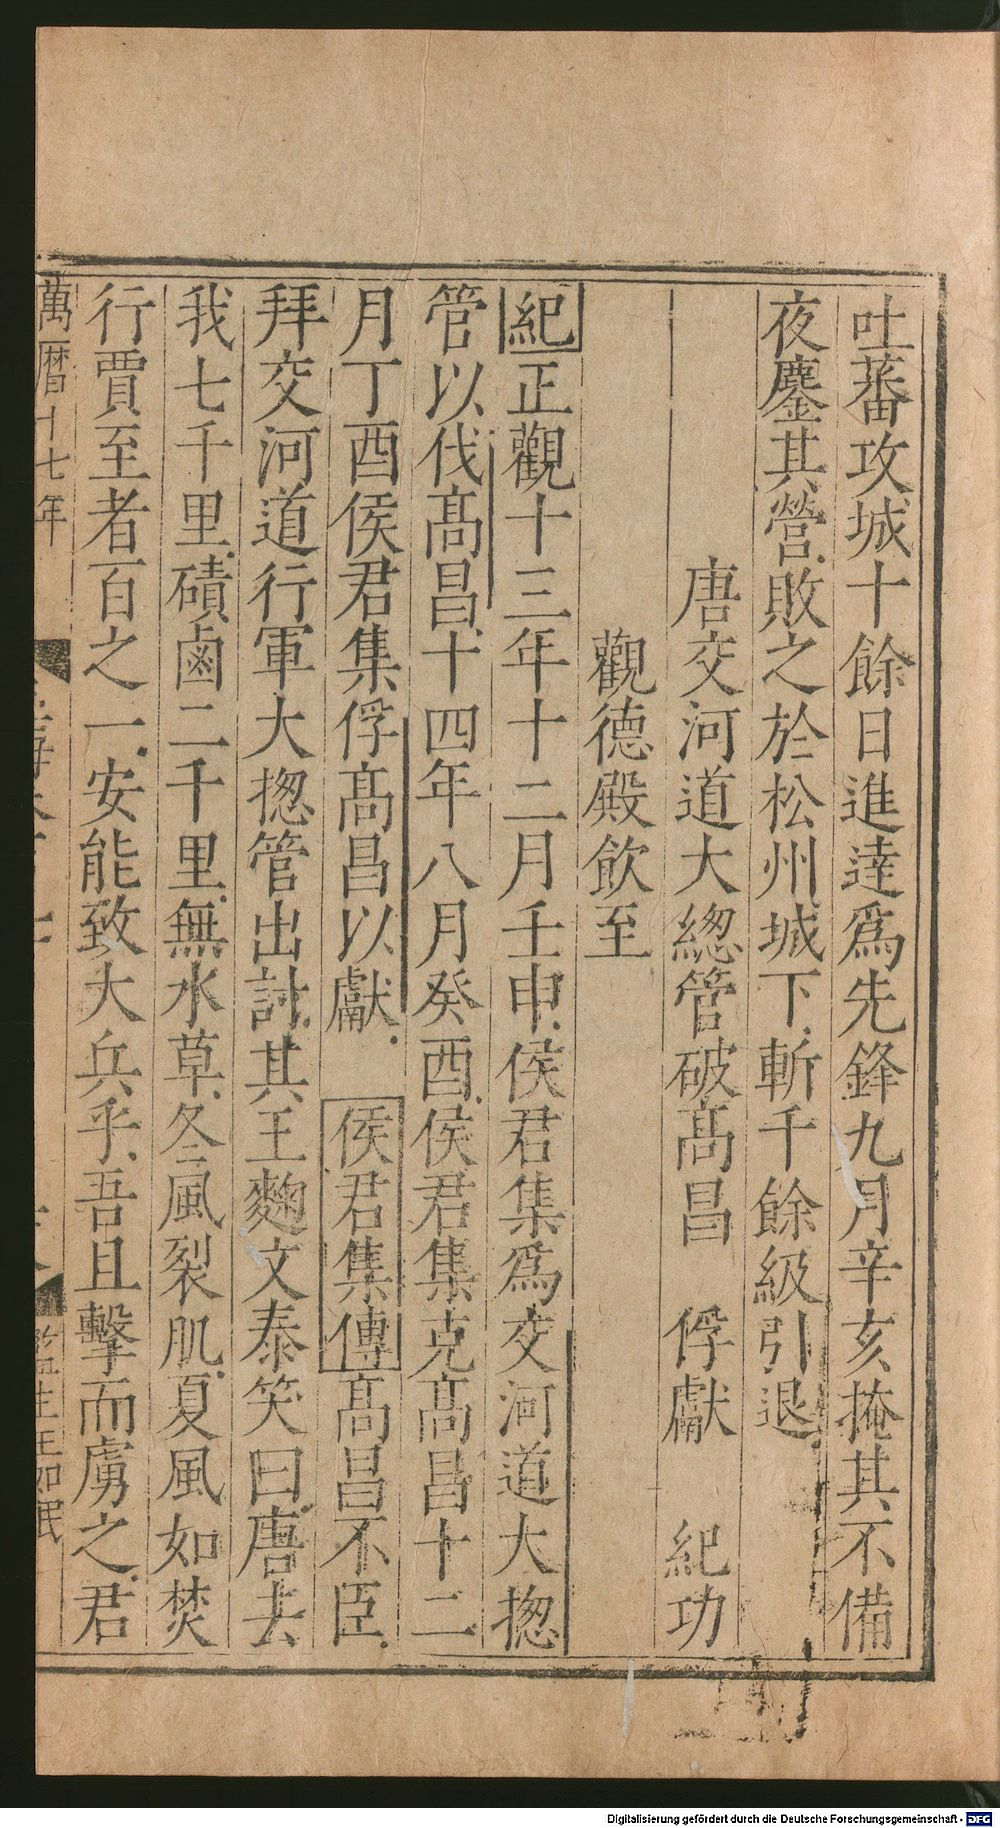 吐蕃攻城十餘日進逹爲先鋒九月辛亥掩其不備
夜鏖其營敗之於松州城下斬千餘級引退
唐交河道大緫管破髙昌　俘獻　紀功
觀德殿飲至
紀正觀十三年十二月壬申侯君集爲交河道大揔
管以伐髙昌十四年八月癸酉侯君集克髙昌十二
月丁酉侯君集俘髙昌以獻　侯君集傳髙昌不臣
拜交河道行軍大揔管出討其王麴文泰笑曰唐去
我七千里磧鹵二千里無水草冬風裂肌夏風如焚
行賈至者百之一安能致大兵乎吾且擊而虜之君
萬曆十七年
監生王如珉
Digitalisierung gefördert durch die Deutsche Forschungsgemeinschaft - DFG